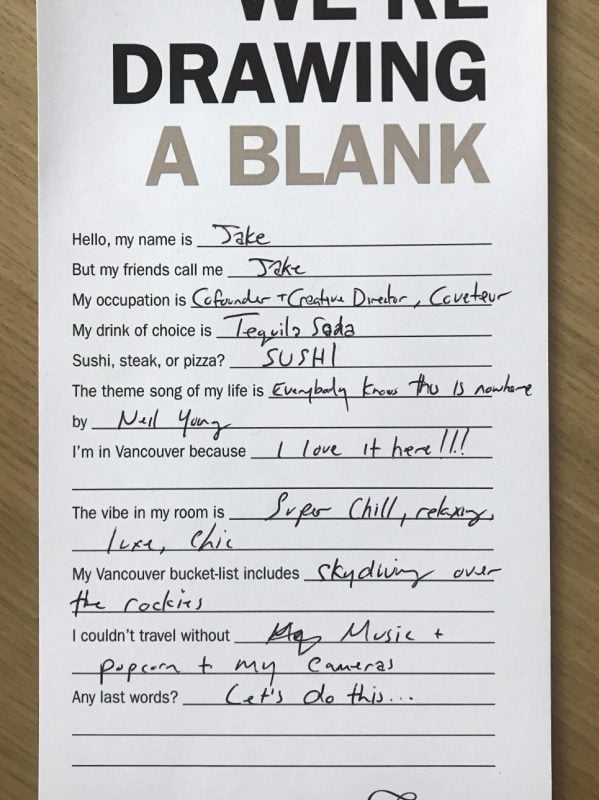 WE'RE
DRAWING
A BLANK
Hello, my name is Jake
But my friends call me Jake
My occupation is Cofounder + Creative Director, Coveteur
My drink of choice is Tequila Soda
Sushi, steak, or pizza? SUSHI
The theme song of my life is Everybody knows this is nowhere
by Neil Young
I'm in Vancouver because I love it here!!!
The vibe in my room is Super Chill, relaxing,
luxe, Chic
My Vancouver bucket-list includes skydiving over
the rockies
I couldn't travel without Music +
popcorn + my cameras
Any last words? Let's do this...